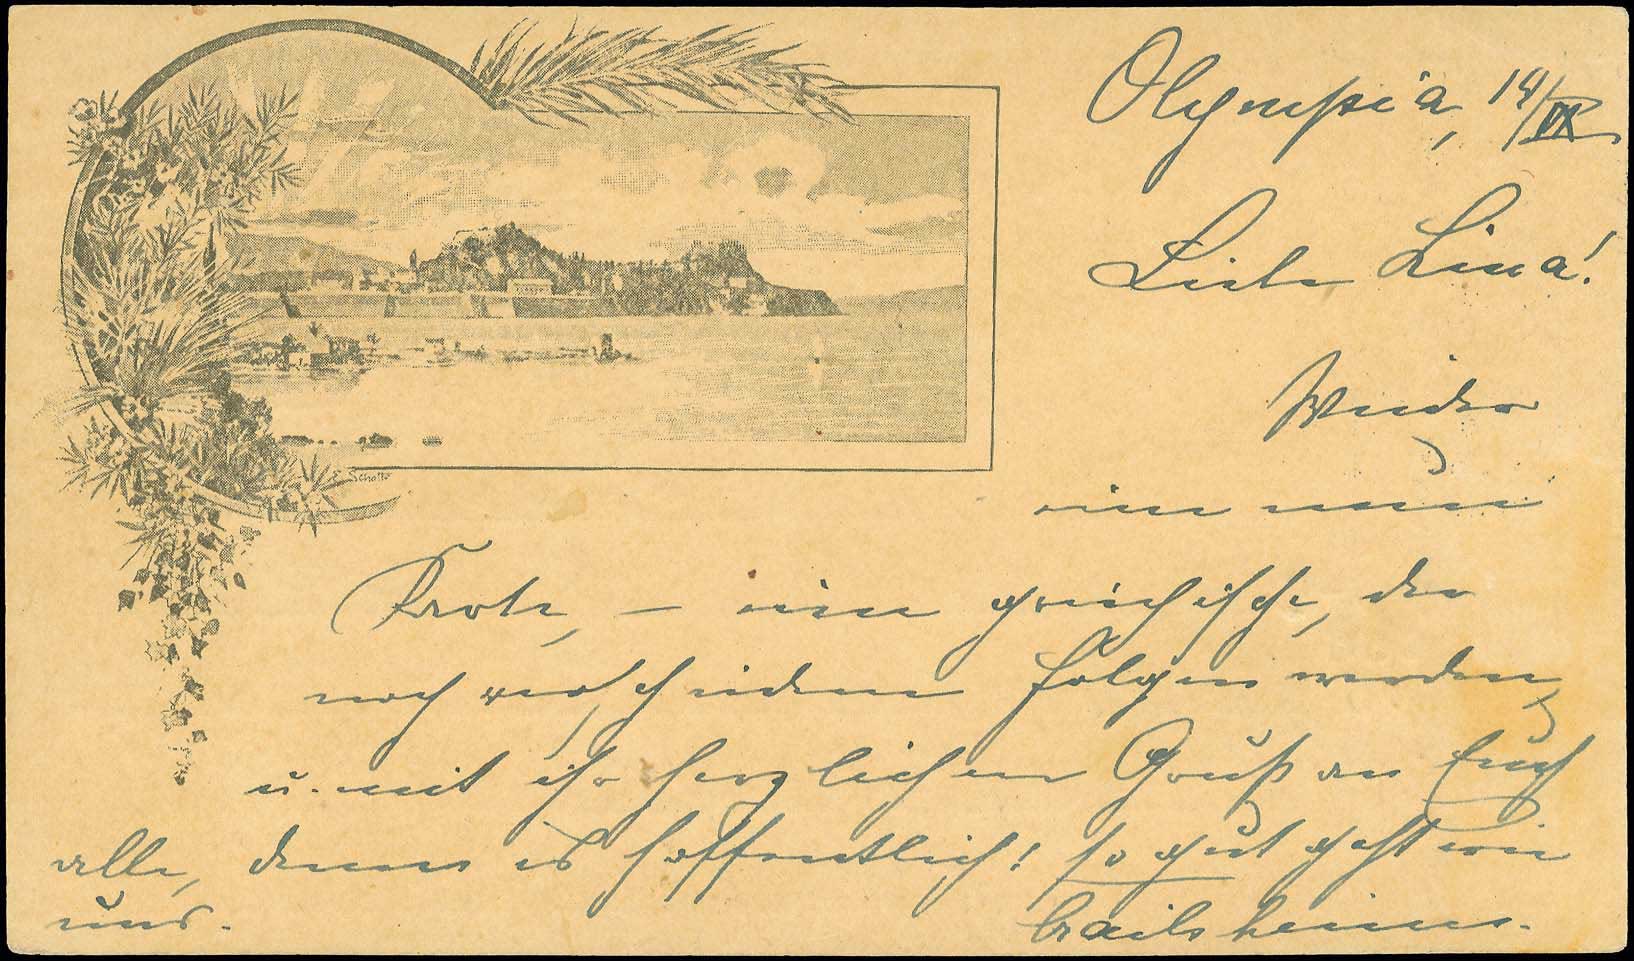 Olympia, 14/IX
Liebe Lina!
Wieder
eine neue
Karte, – eine griechische, der
noch verschiedene folgen werden,
u. mit ihr herzlichen Gruß an Euch
alle, denen es hoffentlich! so gut geht wie
uns.
E. Schott